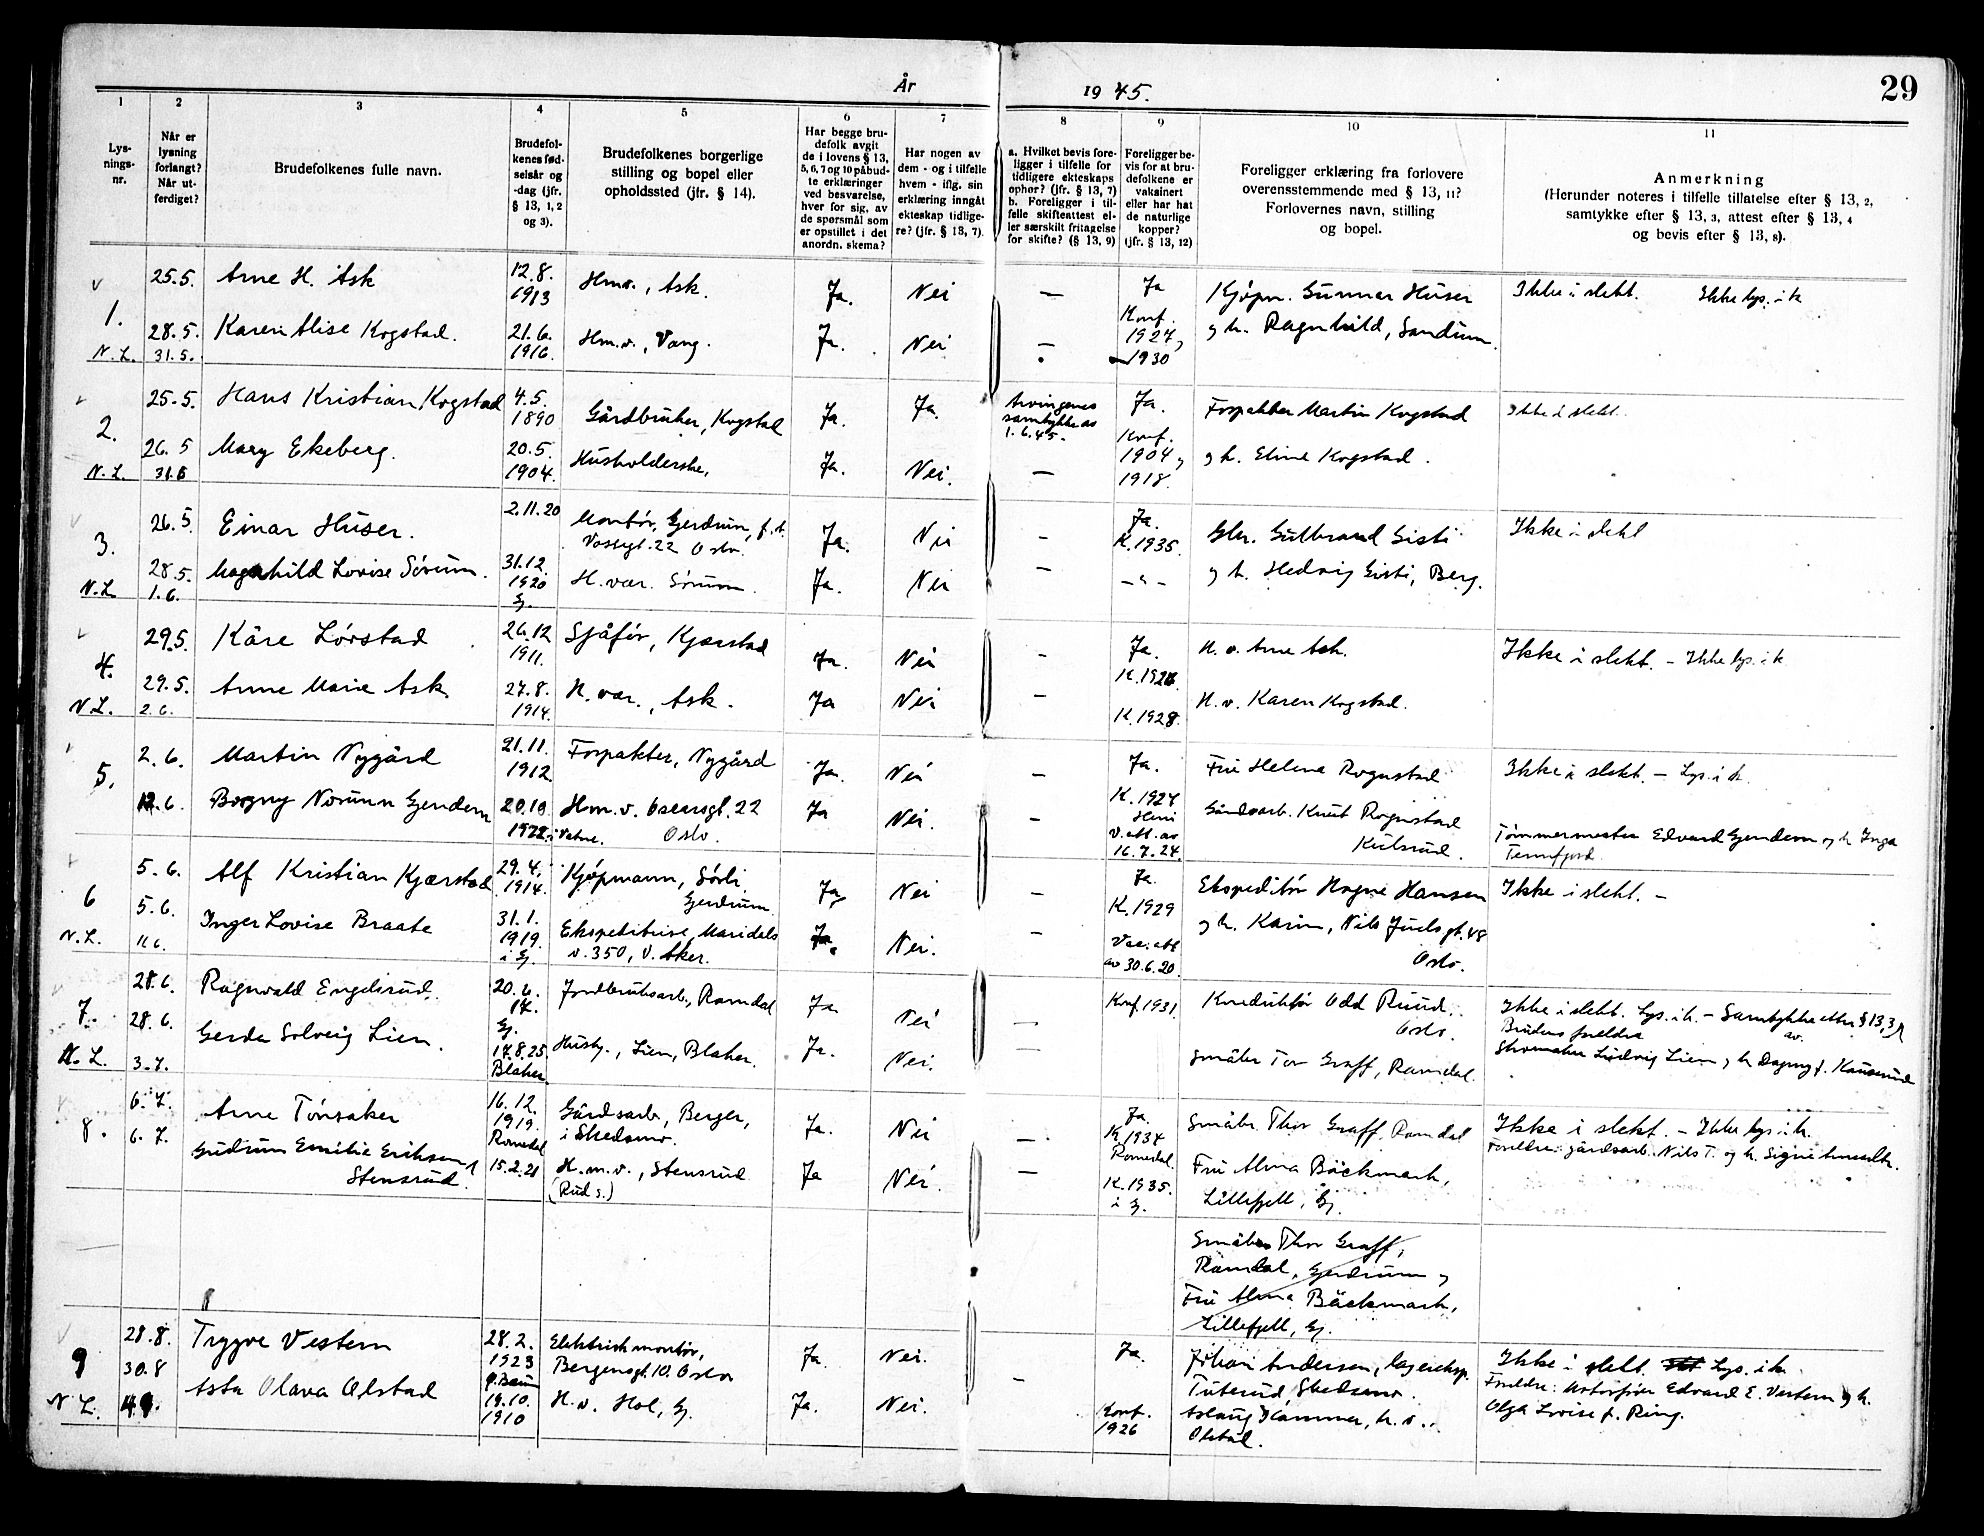 År 1945.
29
1 2 3 4 5 6 7 8 9 10 11
Lys-
nings-
nr.
Når er
lysning
forlangt?
Når ut-
ferdiget?
Brudefolkenes fulle navn.
Brudefol-
kenes fød-
selsår og
-dag (jfr.
§ 13, 1, 2
og 3).
Brudefolkenes borgerlige
stilling og bopel eller
opholdssted (jfr. § 14).
Har begge bru-
defolk avgit
de i lovens § 13,
5, 6, 7 og 10 påbud-
te erklæringer
ved besvarelse,
hver for sig, av
de spørsmål som
er opstillet i det
anordn. skema?
Har nogen av
dem - og i tilfelle
hvem - iflg. sin
erklæring inngåt
ekteskap tidlige-
re? (jfr. § 13, 7).
a. Hvilket bevis fore-
ligger i tilfelle for
tidligere ekteskaps
ophør? (jfr. § 13, 7)
b. Foreligger i til-
felle skifteattest el-
ler særskilt fritagelse
for skifte? (§ 13, 9)
Foreligger be-
vis for at bru-
defolkene er
vaksinert
eller har hat
de naturlige
kopper?
(jfr. § 13, 12)
Foreligger erklæring fra forlovere
overensstemmende med § 13, 11?
Forlovernes navn, stilling
og bopel.
Anmerkning
(Herunder noteres i tilfelle tillatelse efter § 13, 2,
samtykke efter § 13, 3, attest efter § 13, 4
og bevis efter § 13, 8).
1.
N.L.
25.5.
28.5.
31.5.
Arne H. Ask
Karen Alise Kogstad.
12.8.
1913
21.6.
1916
Hmv., Ask.
Hm.v., Vang.
Ja.
Ja.
Nei
Nei
—
—
Ja
Konf.
1927,
1930
Kjøpm. Gunnar Huser
og h. Ragnhild, Sandum.
Ikke i slekt. Ikke lys. i k
2.
N.L.
25.5.
26.5
31.5
Hans Kristian Kogstad
Mary Ekeberg.
4.5.
1890
20.5.
1904.
Gårdbruker, Kogstad
Husholderske,
Ja.
Ja.
Ja.
Nei.
Arvingenes
samtykke av
1.6.45.
—
Ja.
Konf.
1904 og
1918.
Forpakter Martin Kogstad
og h. Eline Kogstad.
Ikke i slekt.
3.
N.L
26.5
28.5.
1.6.
Einar Huser.
Magnhild Lovise Sørum.
2.11.20
31.12.
1920
Gj.
Montør, Gjerdrum, f.t.
Vossegt. 22 Oslo.
H.vær. Sørum.
Ja.
Ja.
Nei
Nei
—
—
Ja.
K.1935.
— " —
Gbr. Gulbrand Gisti
og h. Hedvig Gisti, Berg.
Ikke i slekt
4.
N.L.
29.5.
29.5.
2.6.
Kåre Lørstad
Anne Marie Ask
26.12
1911.
27.8.
1914.
Sjåfør, Kjærstad
H.vær., Ask.
Ja.
Ja
Nei
Nei
—
—
Ja.
K.1926.
K.1928.
H.v. Arne Ask.
H.v. Karen Kogstad.
Ikke i slekt. - Ikke lys. i k
5.
2.6.
12.6.
Martin Nygård
Borgny Norunn Gjendem
21.11.
1912
20.10
1922 i
Vatne.
Forpakter, Nygård
Hm.v. Oscarsgt. 22
Oslo.
Ja.
Ja
Nei
Nei.
—
—
Ja.
K.1927
Heni
V.att. av
16.7.24.
Fru Helena Rognstad
Gårdsarb. Knut Rognstad
Kulsrud.
Ikke i slekt. - Lys. i k.
Tømmermester Edvard Gjendem og h Inga
Tennfjord.
6
N.L.
5.6.
5.6.
11.6.
Alf Kristian Kjærstad
Inger Lovise Braate
29.4.
1914.
31.1.
1919.
i Gj.
Kjøpmann, Sørli
Gjerdrum.
Ekspeditrise, Maridals
v. 350, V. Aker.
Ja,
Ja.
Nei
Nei.
—
—
Ja.
K.1929
Vac.att
av 30.6.20.
Ekspeditør Hagne Hansen
og h. Karin, Nils Juels gt. 48
Oslo.
Ikke i slekt. -
7.
N.L.
28.6.
28.6.
3.7.
Ragnvald Engelsrud.
Gerda Solveig Lien.
20.6.
17.
Gj.
17.8.25
Blaker
Jordbruksarb., Ramdal
Hushj., Lien, Blaker.
Ja
Ja.
Nei
Nei.
—
—
Konf. 1931.
Konduktør Odd Ruud,
Oslo.
Småbr Tor Graff, Ramdal.
Ikke i slekt. Lys. i k. - Samtykke etter § 13,3 av
Brudens foreldre
Skomaker Ludvig Lien og h Dagny f. Kauserud
8.
6.7.
6.7.
Arne Tønsaker
Gudrun Emilie Eriksen
Stensrud.
16.12.
1919.
Romedal
15.2.21
Gårdsarb., Berger,
i Skedsmo.
H.m.v., Stensrud
(Rud s.)
Ja.
Ja
Nei
Nei.
—
—
Ja.
K 1934
Romedal.
K.1935.
i Gj.
Småbr. Thor Graff, Ramdal
Fru Alma Bäckmark,
Lillefjell, Gj.
Ikke i slekt. - Ikke lys. i k.
Foreldre: gårdsarb. Nils T. og h. Signe
Småbr Thor Graff,
Ramdal, Gjerdrum og
Fru Alma Bäckmark,
Lillefjell, Gj.
9
N L.
28.8.
30.8
4.9.
Trygve Vestern
Asta Olava Olstad
28.2.
1923
19.10.
1910
Elektrisk montør,
Bergensgt. 10. Oslo
H.v. Hol, Gj.
Ja.
Ja.
Nei.
Nei.
—
Ja.
Konf.
1926
Johan Andersen, lagereksp.
Tuterud Skedsmo.
Aslaug Kammer, h.v.
Olstad.
Ikke i slekt. Lys. i k.
Foreldre: Edvard E. Vestern og h.
Olga Lovise f. Ring.